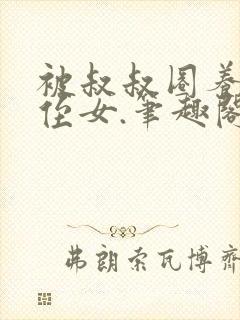 被叔叔圈养
侄女.笔趣阁
弗朗索瓦博齐